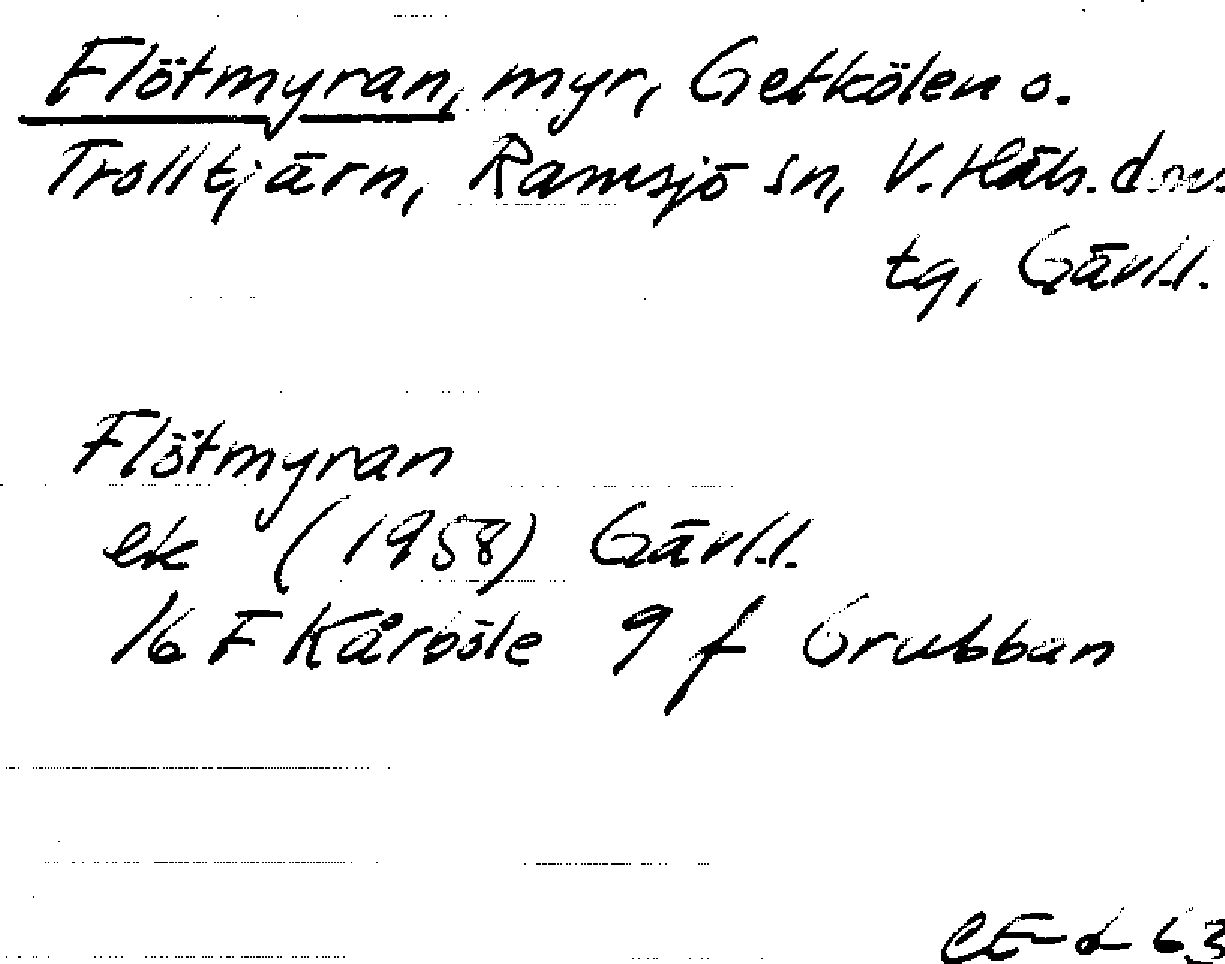 Flötmyran, myr, Getkölen o.
Trolltjärn, Ramsjö sn, V. Häls. doms.
tg, Gävl.l.
Flötmyran
ek (1958) Gävl.l.
16 F Kårböle 9 f Grubban
63